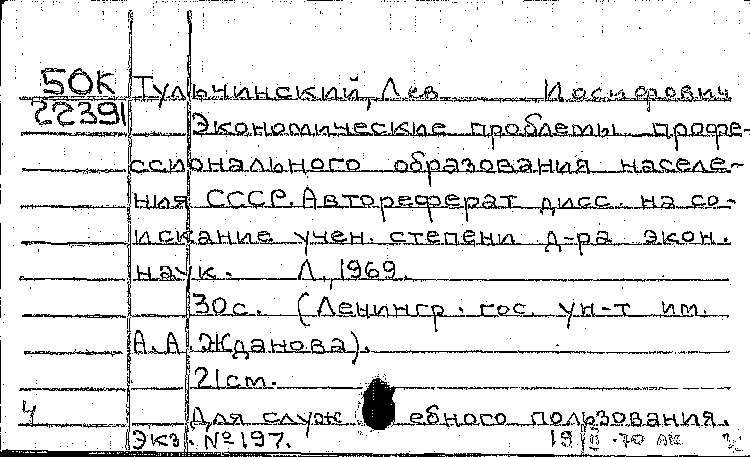 50К Тульчинский, Лев Иосифович
22391
Экономические проблемы профе-
ссионального образования населе-
ния СССР. Автореферат дисс. на со-
искание учен. степени д-ра экон.
наук. Л., 1969.
30с. (Ленингр. гос. ун-т им.
А.А. Жданова).
21см.
4 Для служ ебного пользования.
Экз. №197. 19 II-70